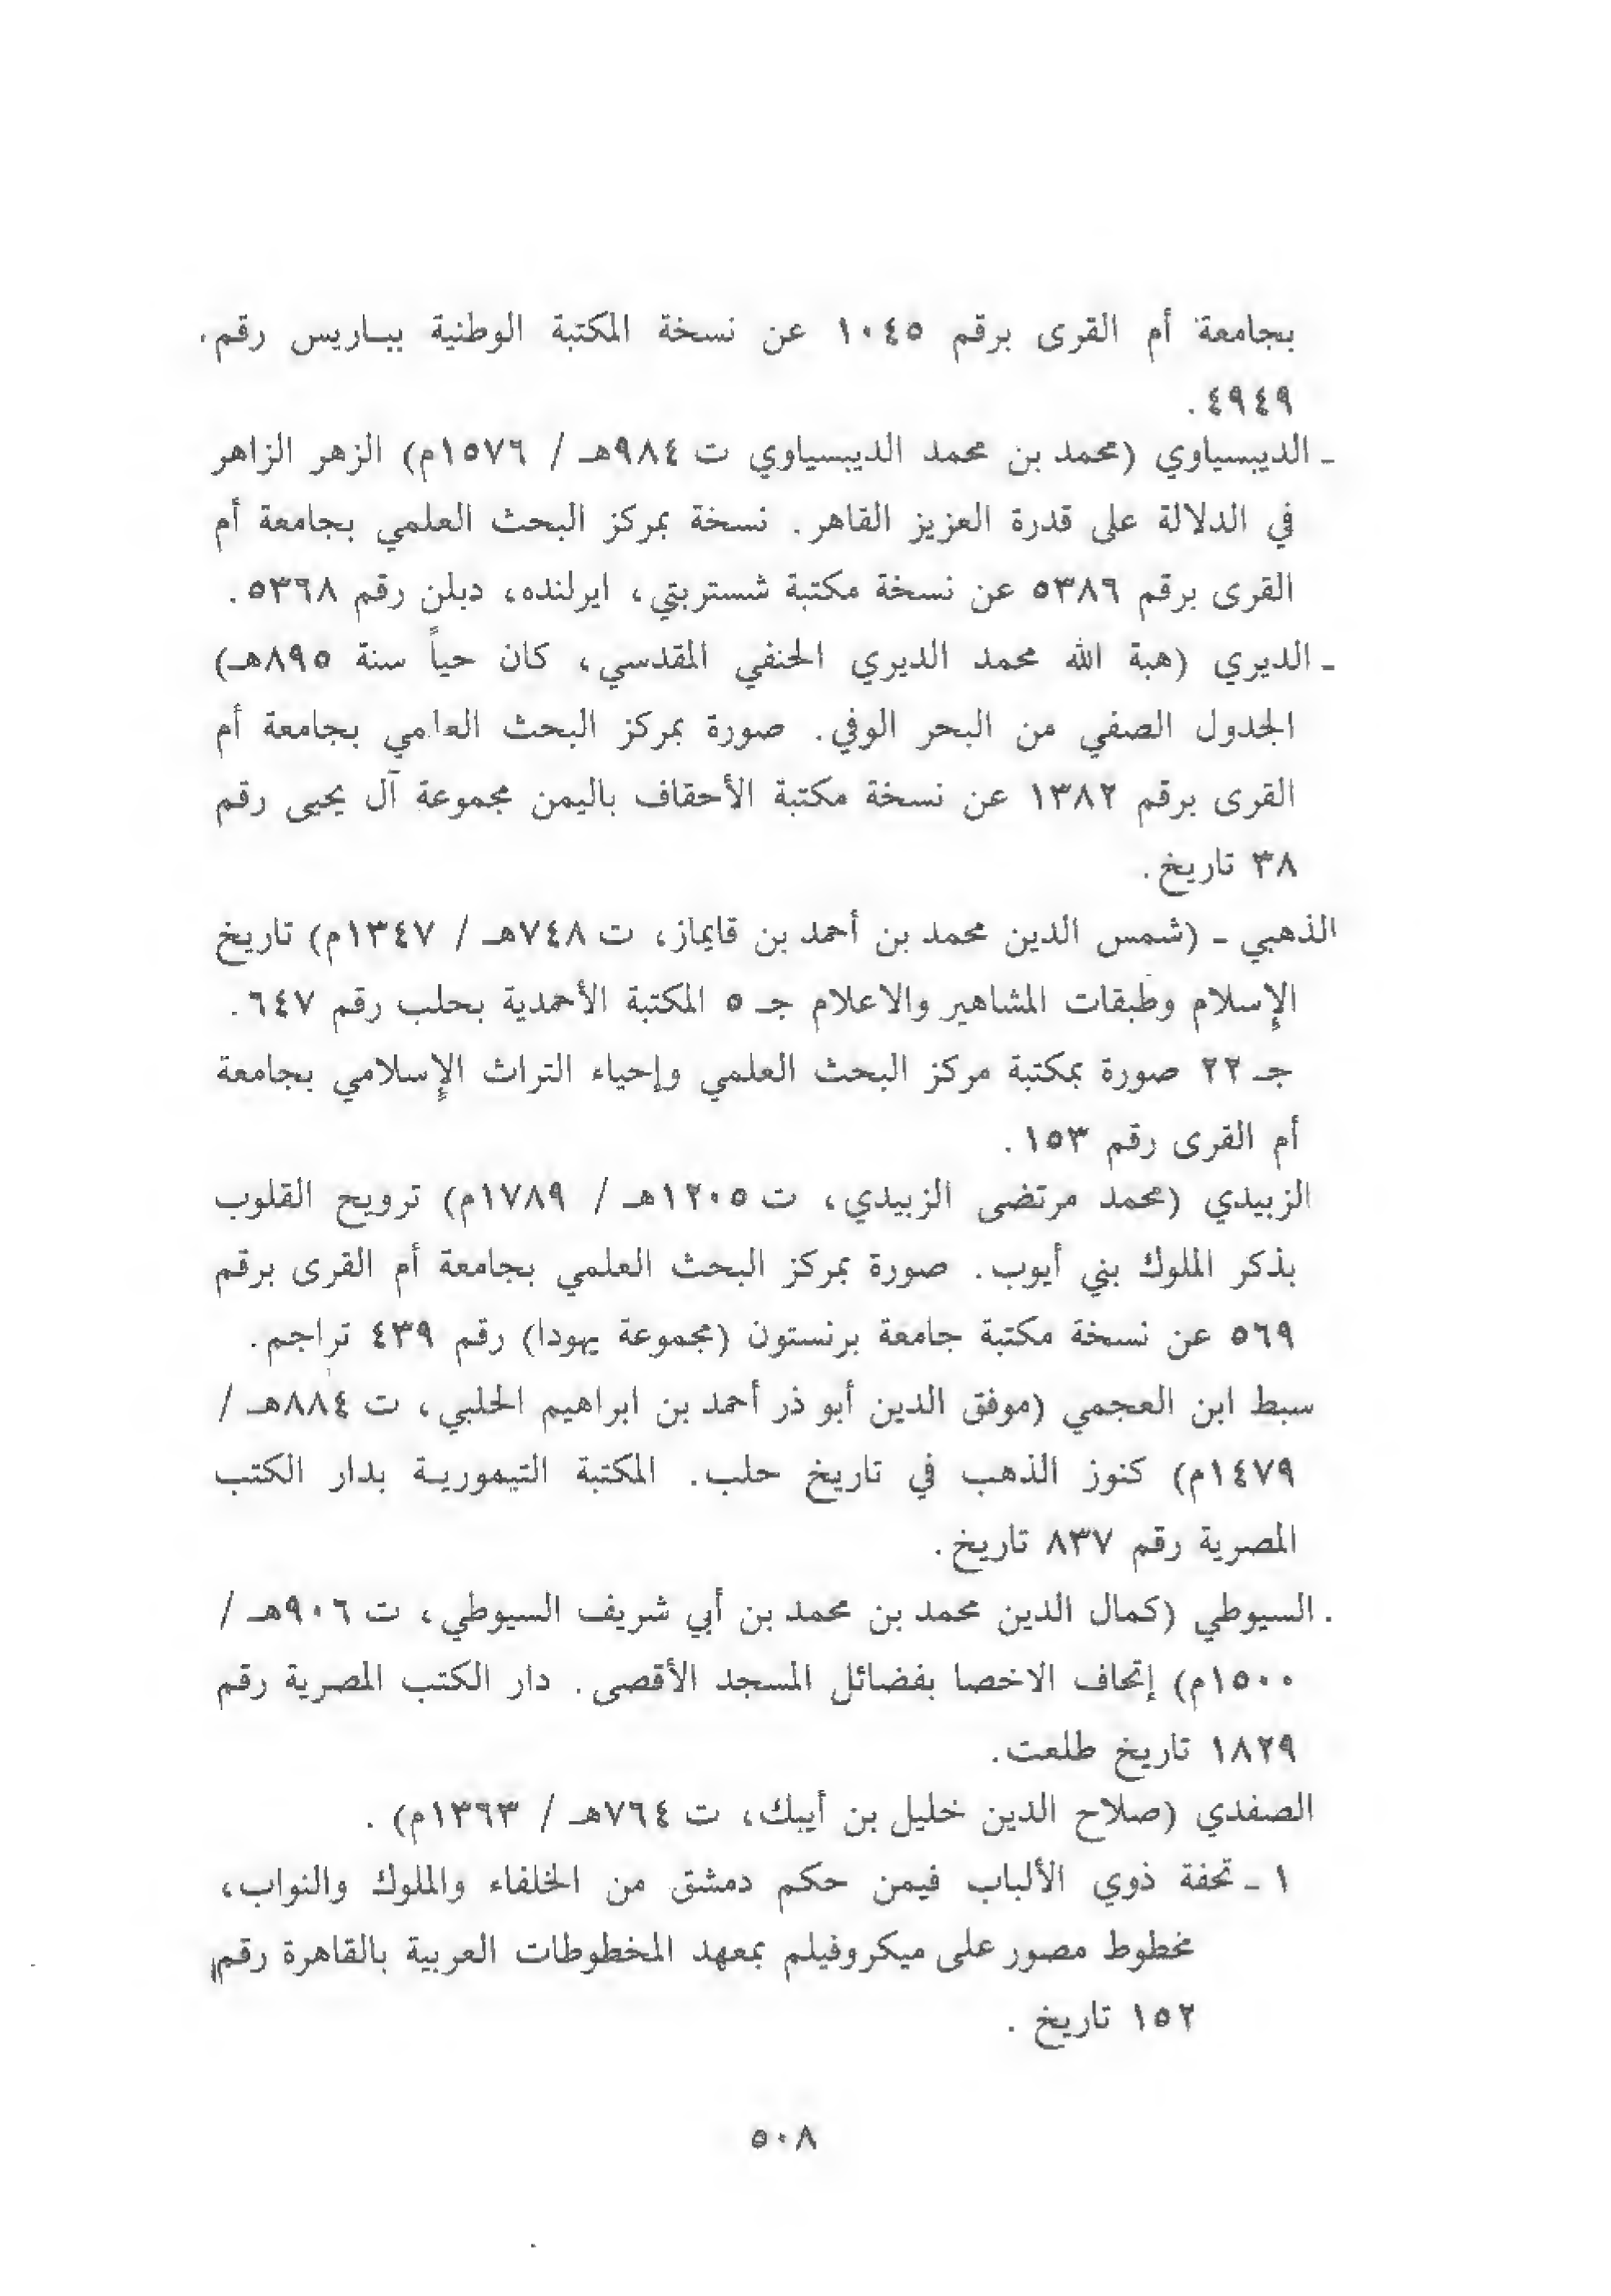 بجامعة أم القرى برقم ١٠٤٥ عن نسخة المكتبة الوطنية بباريس رقم.
٤٩٤٩ .
ـ الديبسياوي (محمد بن محمد الديبسياوي ت ٩٨٤هـ / ١٥٧٦م) الزهر الزاهر
في الدلالة على قدرة العزيز القاهر. نسخة بمركز البحث العلمي بجامعة أم
القرى برقم ٥٣٨٦ عن نسخة مكتبة شستربتي، ايرلنده، دبلن رقم ٥٣٦٨.
ـ الديري (هبة الله محمد الديري الحنفي المقدسي، كان حياً سنة ٨٩٥هـ)
الجدول الصفي من البحر الوفي. صورة بمركز البحث العلمي بجامعة أم
القرى برقم ١٣٨٢ عن نسخة مكتبة الأحقاف باليمن مجموعة آل يحيى رقم
٣٨ تاريخ.
الذهبي ـ (شمس الدين محمد بن أحمد بن قايماز، ت ٧٤٨هـ / ١٣٤٧م) تاريخ
الإسلام وطبقات المشاهير والاعلام جـ ٥ المكتبة الأحمدية بحلب رقم ٦٤٧.
جـ ٢٢ صورة بمكتبة مركز البحث العلمي وإحياء التراث الإسلامي بجامعة
أم القرى رقم ١٥٣ .
الزبيدي (محمد مرتضى الزبيدي، ت ١٢٠٥هـ / ١٧٨٩م) ترويح القلوب
بذكر الملوك بني أيوب. صورة بمركز البحث العلمي بجامعة أم القرى برقم
٥٦٩ عن نسخة مكتبة جامعة برنستون (مجموعة يهودا) رقم ٤٣٩ تراجم.
سبط ابن العجمي (موفق الدين أبو ذر أحمد بن ابراهيم الحلبي، ت ٨٨٤هـ /
١٤٧٩م) كنوز الذهب في تاريخ حلب. المكتبة التيمورية بدار الكتب
المصرية رقم ٨٣٧ تاريخ.
. السيوطي (كمال الدين محمد بن محمد بن أبي شريف السيوطي، ت ٩٠٦هـ /
١٥٠٠م) إتحاف الاخصا بفضائل المسجد الأقصى. دار الكتب المصرية رقم
١٨٢٩ تاريخ طلعت.
الصفدي (صلاح الدين خليل بن أيبك، ت ٧٦٤هـ / ١٣٦٣م) .
١ ـ تحفة ذوي الألباب فيمن حكم دمشق من الخلفاء والملوك والنواب،
مخطوط مصور على ميكروفيلم بمعهد المخطوطات العربية بالقاهرة رقم
١٥٢ تاريخ .
٥٠٨